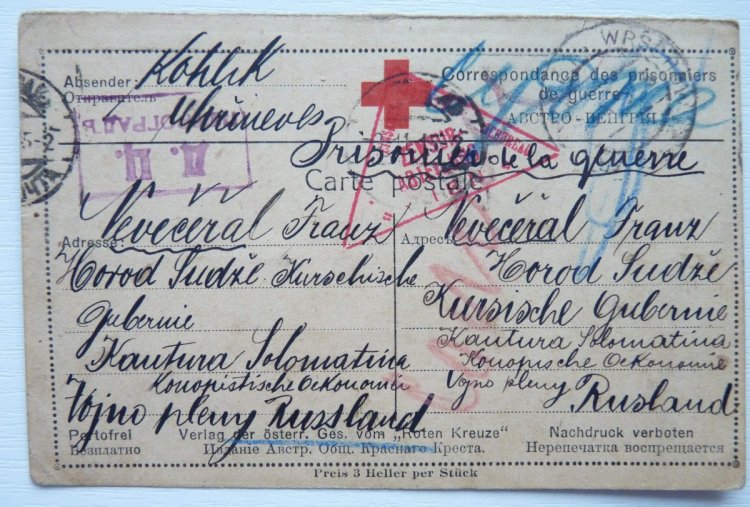 Absender: Kohlík
Отправитель Uhříneves
Correspondance des prisonniers
de guerre
АВСТРО-ВЕНГРІЯ
Д. Ц.
Prisonnier de la guerre
Carte postale
Adresse: Nevečeřal Franz
Horod Sudže Kurschische
Gubernie
Kautura Solomatina
Konopistische Oekonomie
Vojno pleny Russland
Адресъ: Nevečeřal Franz
Horod Sudže
Kursische Gubernie
Kautura Solomatina
Konopische Oekonomie
Vojno pleny
Rusland
Portofrei Verlag der österr. Ges. vom „Roten Kreuze" Nachdruck verboten
Безплатно Изданіе Австр. Общ. Краснаго Креста. Перепечатка воспрещается
Preis 3 Heller per Stück